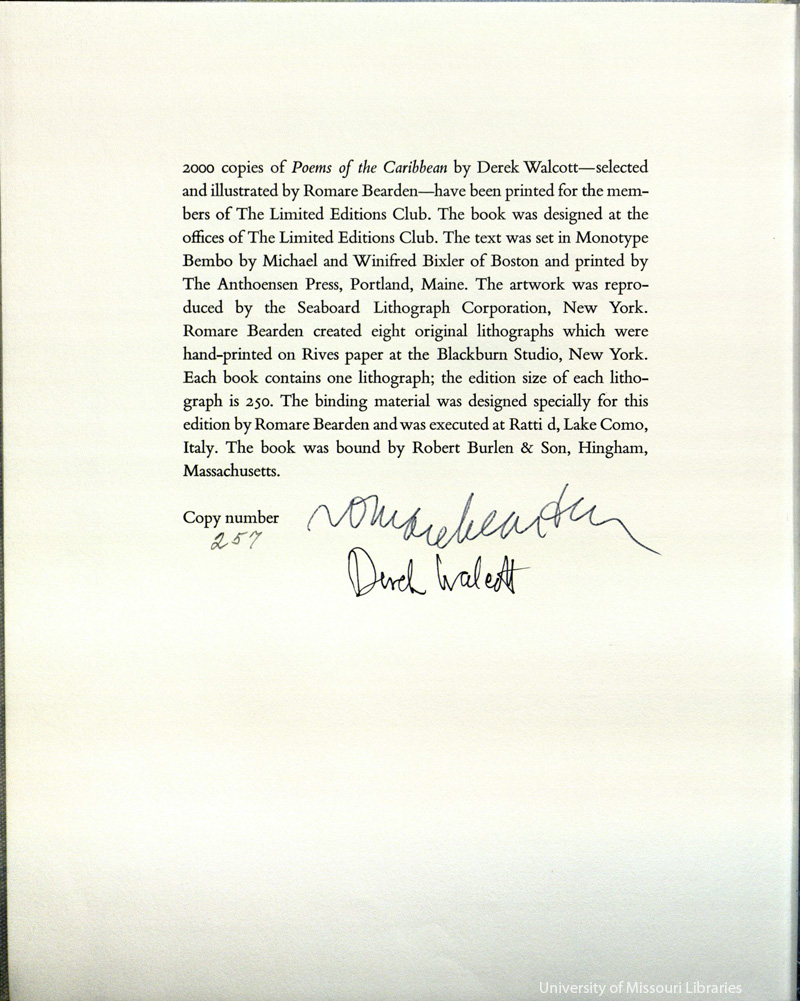 2000 copies of Poems of the Caribbean by Derek Walcott—selected
and illustrated by Romare Bearden—have been printed for the mem-
bers of The Limited Editions Club. The book was designed at the
offices of The Limited Editions Club. The text was set in Monotype
Bembo by Michael and Winifred Bixler of Boston and printed by
The Anthoensen Press, Portland, Maine. The artwork was repro-
duced by the Seaboard Lithograph Corporation, New York.
Romare Bearden created eight original lithographs which were
hand-printed on Rives paper at the Blackburn Studio, New York.
Each book contains one lithograph; the edition size of each litho-
graph is 250. The binding material was designed specially for this
edition by Romare Bearden and was executed at Ratti d, Lake Como,
Italy. The book was bound by Robert Burlen & Son, Hingham,
Massachusetts.
Copy number
257
romare bearden
Derek Walcott
University of Missouri Libraries